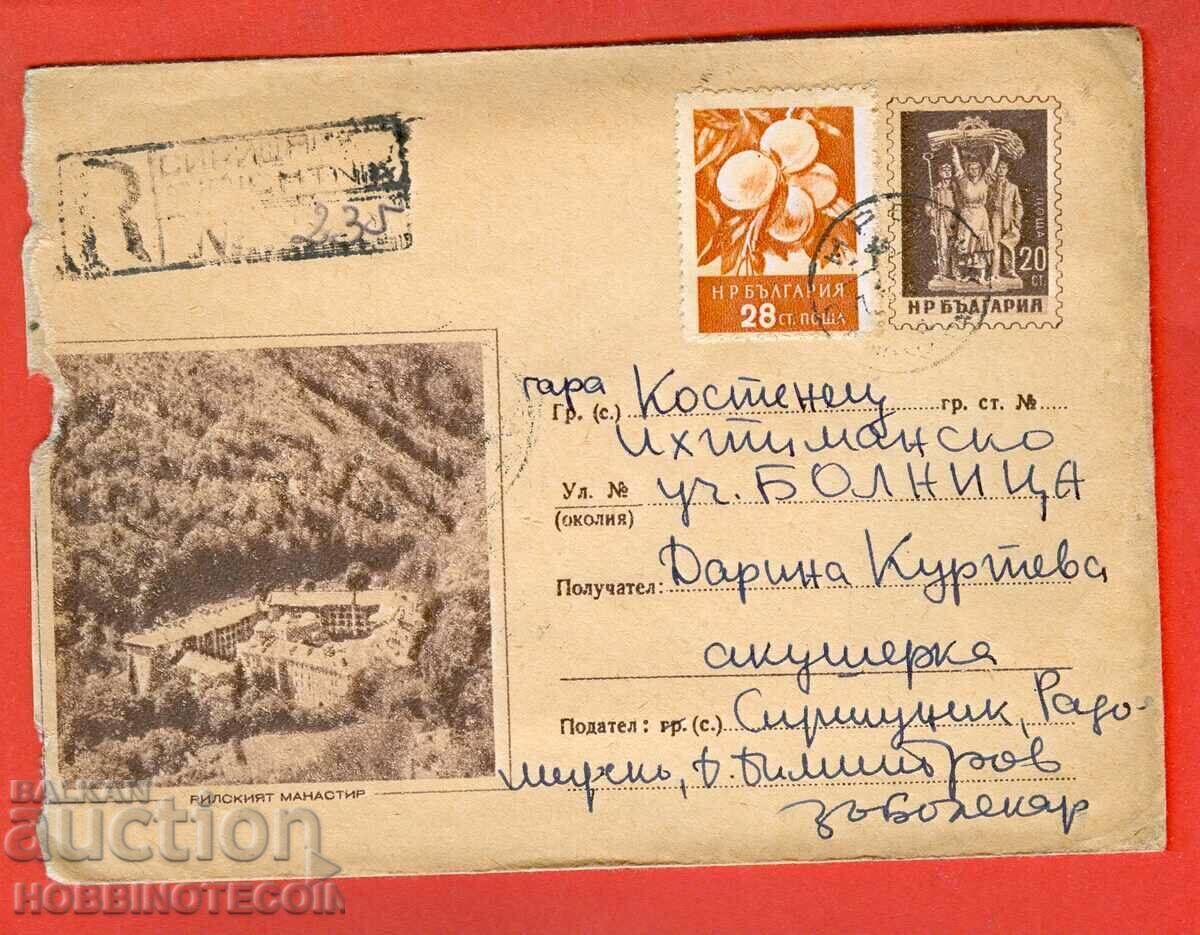 R
235
НР БЪЛГАРИЯ
28 СТ. ПОЩА
ПОЩА
20
СТ.
НР БЪЛГАРИЯ
гара Костенец
Гр. (с.) гр. ст. №
Ихтиманско
Ул. № уч. БОЛНИЦА
(околия)
Получател: Дарина Куртева
акушерка
Подател: гр. (с.) Сирищник, Радо-
мирско, Д. Димитров
зъболекар
РИЛСКИЯТ МАНАСТИР
BALKAN
auction
HOBBINOTECOIN